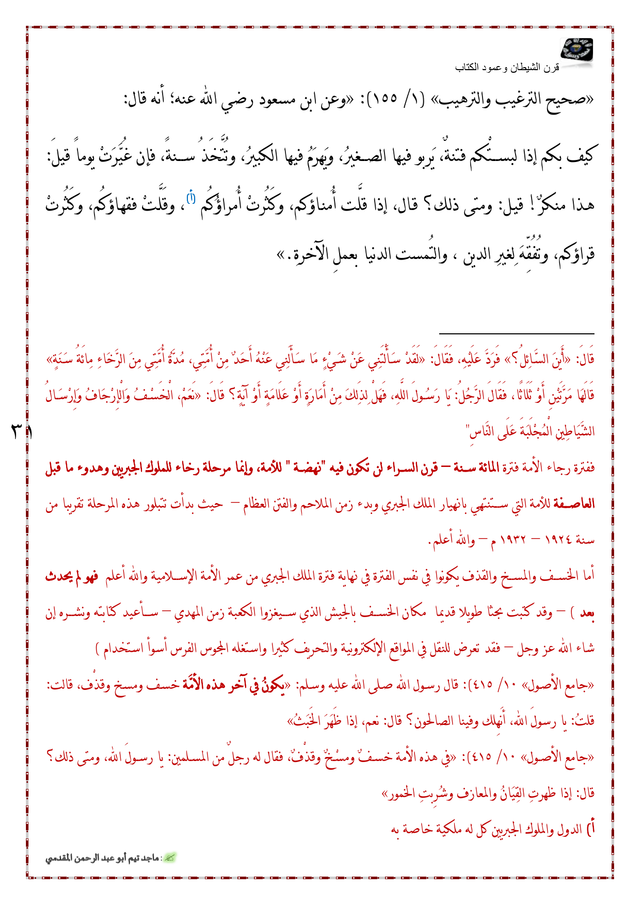 قرن الشيطان وعمود الكتاب
«صحيح الترغيب والترهيب» (١/ ١٥٥): «وعن ابن مسعود رضي الله عنه؛ أنه قال:
كيف بكم إذا لبستْكم فتنةٌ، يَربو فيها الصغيرُ، ويَهرَمُ فيها الكبيرُ، وتُتَّخذُ سنةً، فإن غُيِّرَتْ يوماً قيل:
هذا منكرٌ! قيل: ومتى ذلك؟ قال، إذا قلَّت أُمناؤكم، وكثُرتْ أُمراؤُكم (أ)، وقَلَّتْ فقهاؤكُم، وكثُرتْ
قراؤكم، وتُفُقِّهَ لغيرِ الدين ، والتُمست الدنيا بعملِ الآخرة.»
قَالَ: «أَيْنَ السَّائِلُ؟» فَرَدَّ عَلَيْهِ، فَقَالَ: «لَقَدْ سَأَلْتَنِي عَنْ شَيْءٍ مَا سَأَلَنِي عَنْهُ أَحَدٌ مِنْ أُمَّتِي، مُدَّةُ أُمَّتِي مِنَ الرَّخَاءِ مِائَةُ سَنَةٍ»
قَالَهَا مَرَّتَيْنِ أَوْ ثَلَاثًا، فَقَالَ الرَّجُلُ: يَا رَسُولَ اللَّهِ، فَهَلْ لِذَلِكَ مِنْ أَمَارَةٍ أَوْ عَلَامَةٍ أَوْ آيَةٍ؟ قَالَ: «نَعَمْ، الْخَسْفُ وَالْإِرْجَافُ وَإِرْسَالُ
الشَّيَاطِينِ الْمُجْلَبَةَ عَلَى النَّاسِ"
٣١
ففترة رجاء الأمة فترة المائة سنة – قرن السراء لن تكون فيه "نهضة " للأمة، وإنما مرحلة رخاء للملوك الجبريين وهدوء ما قبل
العاصفة للأمة التي ستنتهي بانهيار الملك الجبري وبدء زمن الملاحم والفتن العظام – حيث بدأت تتبلور هذه المرحلة تقريبا من
سنة ١٩٢٤ – ١٩٣٢ م – والله أعلم.
أما الخسف والمسخ والقذف يكونوا في نفس الفترة في نهاية فترة الملك الجبري من عمر الأمة الإسلامية والله أعلم فهو لم يحدث
بعد ) – وقد كتبت بحثا طويلا قديما مكان الخسف بالجيش الذي سيغزوا الكعبة زمن المهدي – سأعيد كتابته ونشره إن
شاء الله عز وجل – فقد تعرض للنقل في المواقع الإلكترونية والتحريف كثيرا واستغله المجوس الفرس أسوأ استخدام )
«جامع الأصول» ١٠/ ٤١٥): قال رسول الله صلى الله عليه وسلم: «يكونُ في آخر هذه الأمَّة خسف ومسخ وقذْف، قالت:
قلتُ: يا رسولَ الله، أَنَهلك وفينا الصالحون؟ قال: نعم، إذا ظَهَرَ الخَبَثُ»
«جامع الأصول» ١٠/ ٤١٥): «في هذه الأمة خسفٌ ومسْخٌ وقذْفٌ، فقال له رجلٌ من المسلمين: يا رسولَ الله، ومتى ذلك؟
قال: إذا ظهرتِ القِيَانُ والمعازف وشُرِبتِ الخمور»
أ) الدول والملوك الجبريين كل له ملكية خاصة به
: ماجد تيم أبو عبد الرحمن المقدسي